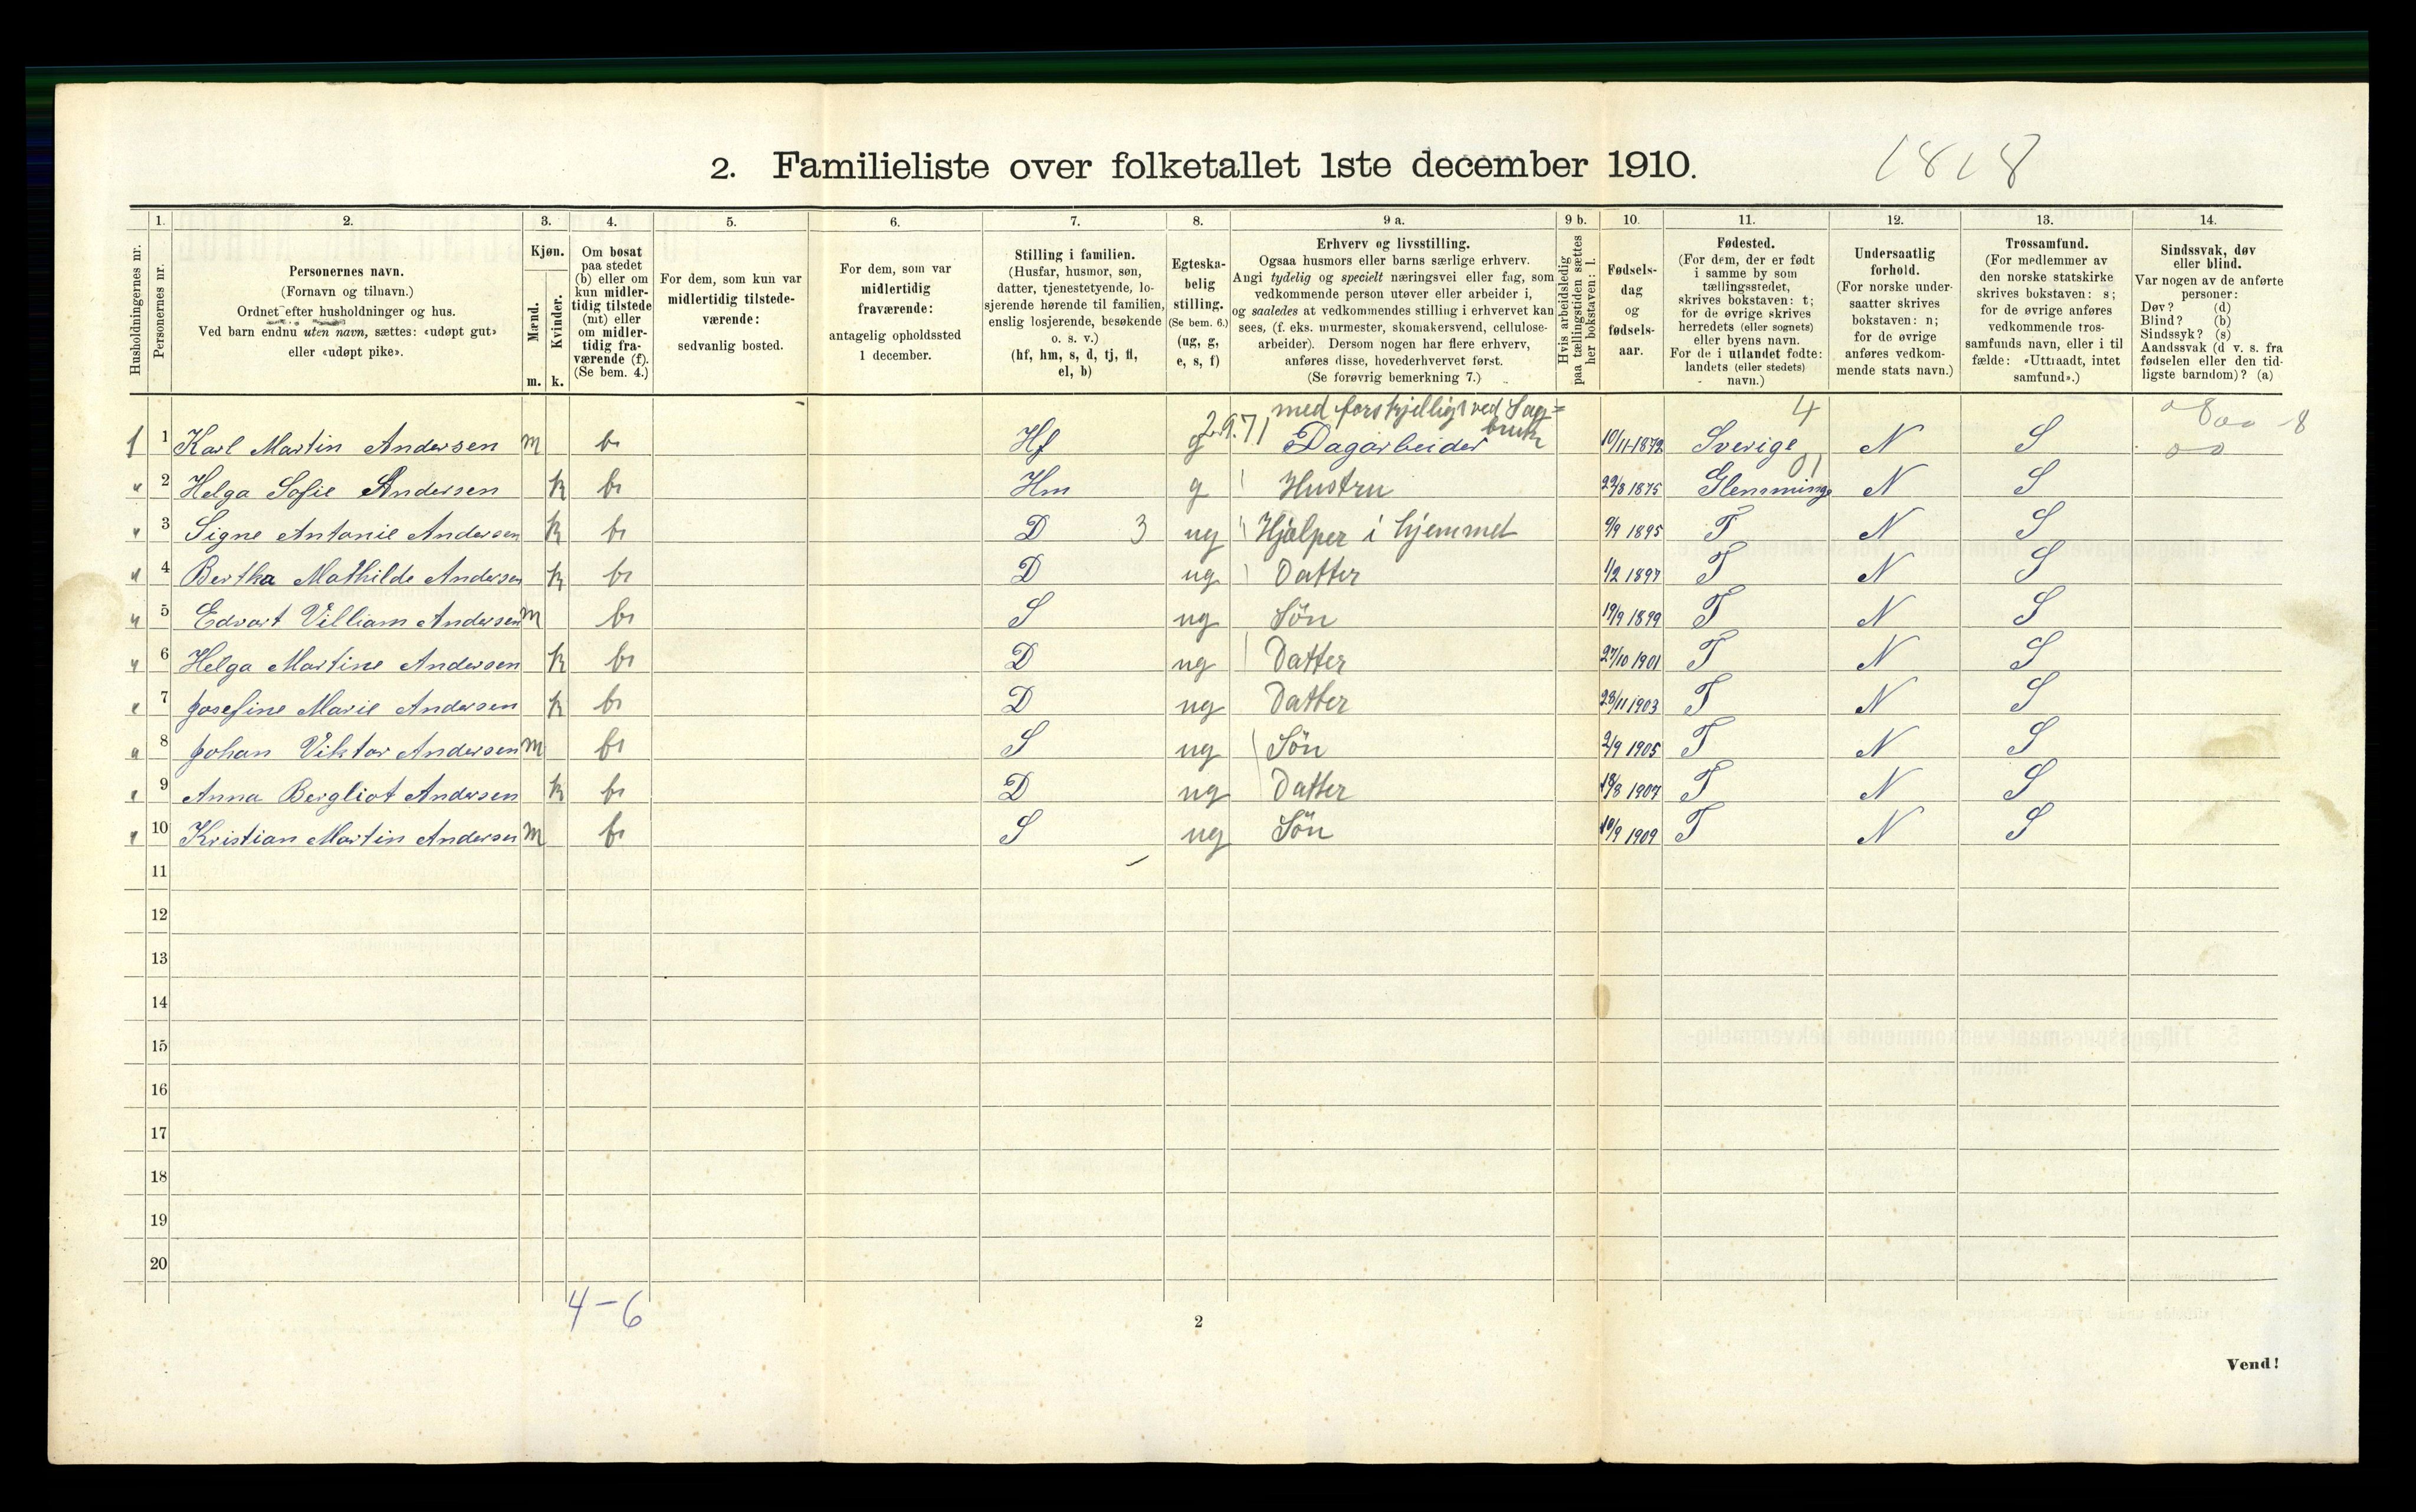 2. Familieliste over folketallet 1ste december 1910.
1818
1. 2. 3. 4. 5. 6. 7. 8. 9 a. 9 b. 10. 11. 12. 13. 14.
Husholdningernes nr.
Personernes nr.
Personernes navn.
(Fornavn og tilnavn.)
Ordnet efter husholdninger og hus.
Ved barn endnu uten navn, sættes: «udøpt gut»
eller «udøpt pike».
Kjøn.
Mænd.
Kvinder.
m. k.
Om bosat
paa stedet
(b) eller om
kun midler-
tidig tilstede
(mt) eller
om midler-
tidig fra-
værende (f).
(Se bem. 4.)
For dem, som kun var
midlertidig tilstede-
værende:
sedvanlig bosted.
For dem, som var
midlertidig
fraværende:
antagelig opholdssted
1 december.
Stilling i familien.
(Husfar, husmor, søn,
datter, tjenestetyende, lo-
sjerende hørende til familien,
enslig losjerende, besøkende
o. s. v.)
(hf, hm, s, d, tj, fl,
el, b)
Egteska-
belig
stilling.
(Se bem. 6.)
(ug, g,
e, s, f)
Erhverv og livsstilling.
Ogsaa husmors eller barns særlige erhverv.
Angi tydelig og specielt næringsvei eller fag, som
vedkommende person utøver eller arbeider i,
og saaledes at vedkommendes stilling i erhvervet kan
sees, (f. eks. murmester, skomakersvend, cellulose-
arbeider). Dersom nogen har flere erhverv,
anføres disse, hovederhvervet først.
(Se forøvrig bemerkning 7.)
Hvis arbeidsledig
paa tællingstiden sættes
her bokstaven: l.
Fødsels-
dag
og
fødsels-
aar.
Fødested.
(For dem, der er født
i samme by som
tællingsstedet,
skrives bokstaven: t;
for de øvrige skrives
herredets (eller sognets)
eller byens navn.
For de i utlandet fødte:
landets (eller stedets)
navn.)
Undersaatlig
forhold.
(For norske under-
saatter skrives
bokstaven: n;
for de øvrige
anføres vedkom-
mende stats navn.)
Trossamfund.
(For medlemmer av
den norske statskirke
skrives bokstaven: s;
for de øvrige anføres
vedkommende tros-
samfunds navn, eller i til
fælde: «Uttraadt, intet
samfund».)
Sindssvak, døv
eller blind.
Var nogen av de anførte
personer:
Døv? (d)
Blind? (b)
Sindssyk? (s)
Aandssvak (d v. s. fra
fødselen eller den tid-
ligste barndom)? (a)
med forskjelligt ved Sag=
bruk 4
1 1 Karl Martin Andersen m b Hf g 29.71 Dagarbeider 10/11-1872 Sverige N S
" 2 Helga Sofie Andersen k b Hm g Hustru 29/8 1875 Glemminge 01 N S
" 3 Signe Antonie Andersen k b D 3 ug Hjælper i hjemmet 9/9 1895 T N S
" 4 Bertha Mathilde Andersen k b D ug Datter 1/2 1897 T N S
" 5 Edvart Villiam Andersen m b S ug Søn 19/9 1899 T N S
" 6 Helga Martine Andersen k b D ug Datter 27/10 1901 T N S
" 7 Josefine Marie Andersen k b D ug Datter 28/11 1903 T N S
" 8 Johan Viktor Andersen m b S ug Søn 2/9 1905 T N S
" 9 Anna Bergliot Andersen k b D ug Datter 18/8 1907 T N S
" 10 Kristian Martin Andersen m b S ug Søn 10/9 1909 T N S
11
12
13
14
15
16
17
18
19
20
4-6
2
Vend!